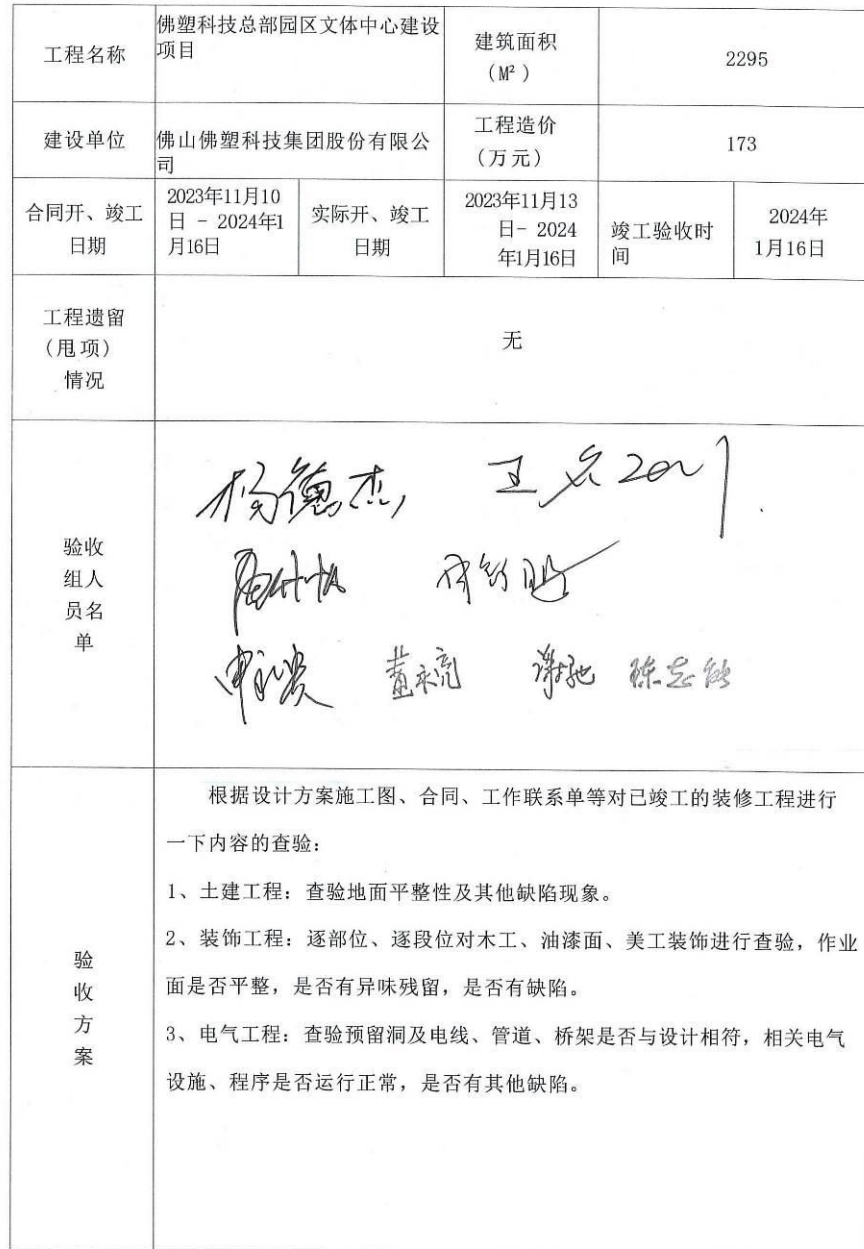 工程名称
佛塑科技总部园区文体中心建设
项目
建筑面积
（M²）
2295
建设单位
佛山佛塑科技集团股份有限公
司
工程造价
（万元）
173
合同开、竣工
日期
2023年11月10
日 - 2024年1
月16日
实际开、竣工
日期
2023年11月13
日- 2024
年1月16日
竣工验收时
间
2024年
1月16日
工程遗留
（甩项）
情况
无
验收
组人
员名
单
杨德杰
黄永亮 谢驰 陈志能
验
收
方
案
根据设计方案施工图、合同、工作联系单等对已竣工的装修工程进行
一下内容的查验：
1、土建工程：查验地面平整性及其他缺陷现象。
2、装饰工程：逐部位、逐段位对木工、油漆面、美工装饰进行查验，作业
面是否平整，是否有异味残留，是否有缺陷。
3、电气工程：查验预留洞及电线、管道、桥架是否与设计相符，相关电气
设施、程序是否运行正常，是否有其他缺陷。